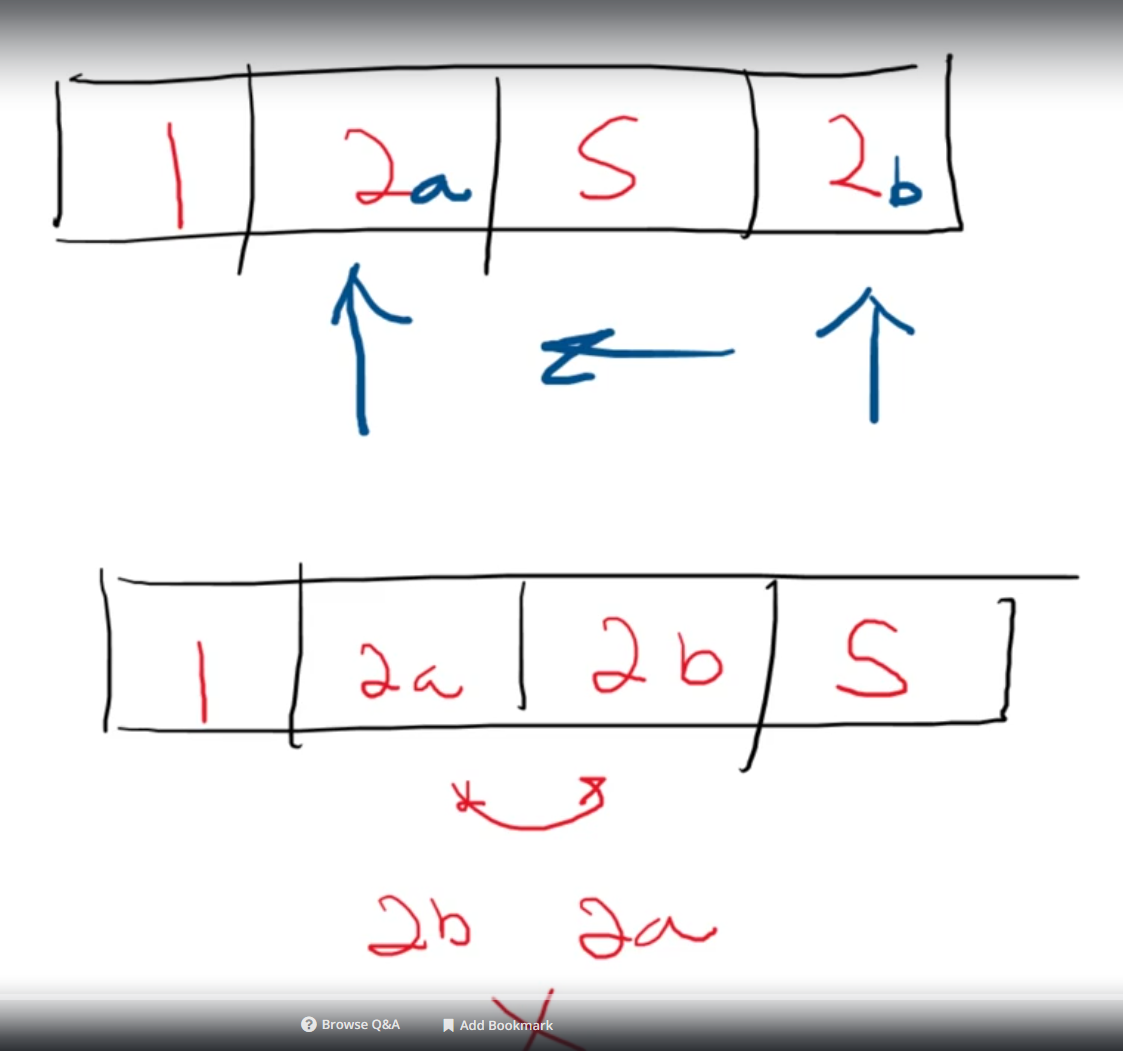 1 2a 5 2b
1 2a 2b 5
2b 2a
Browse Q&A Add Bookmark